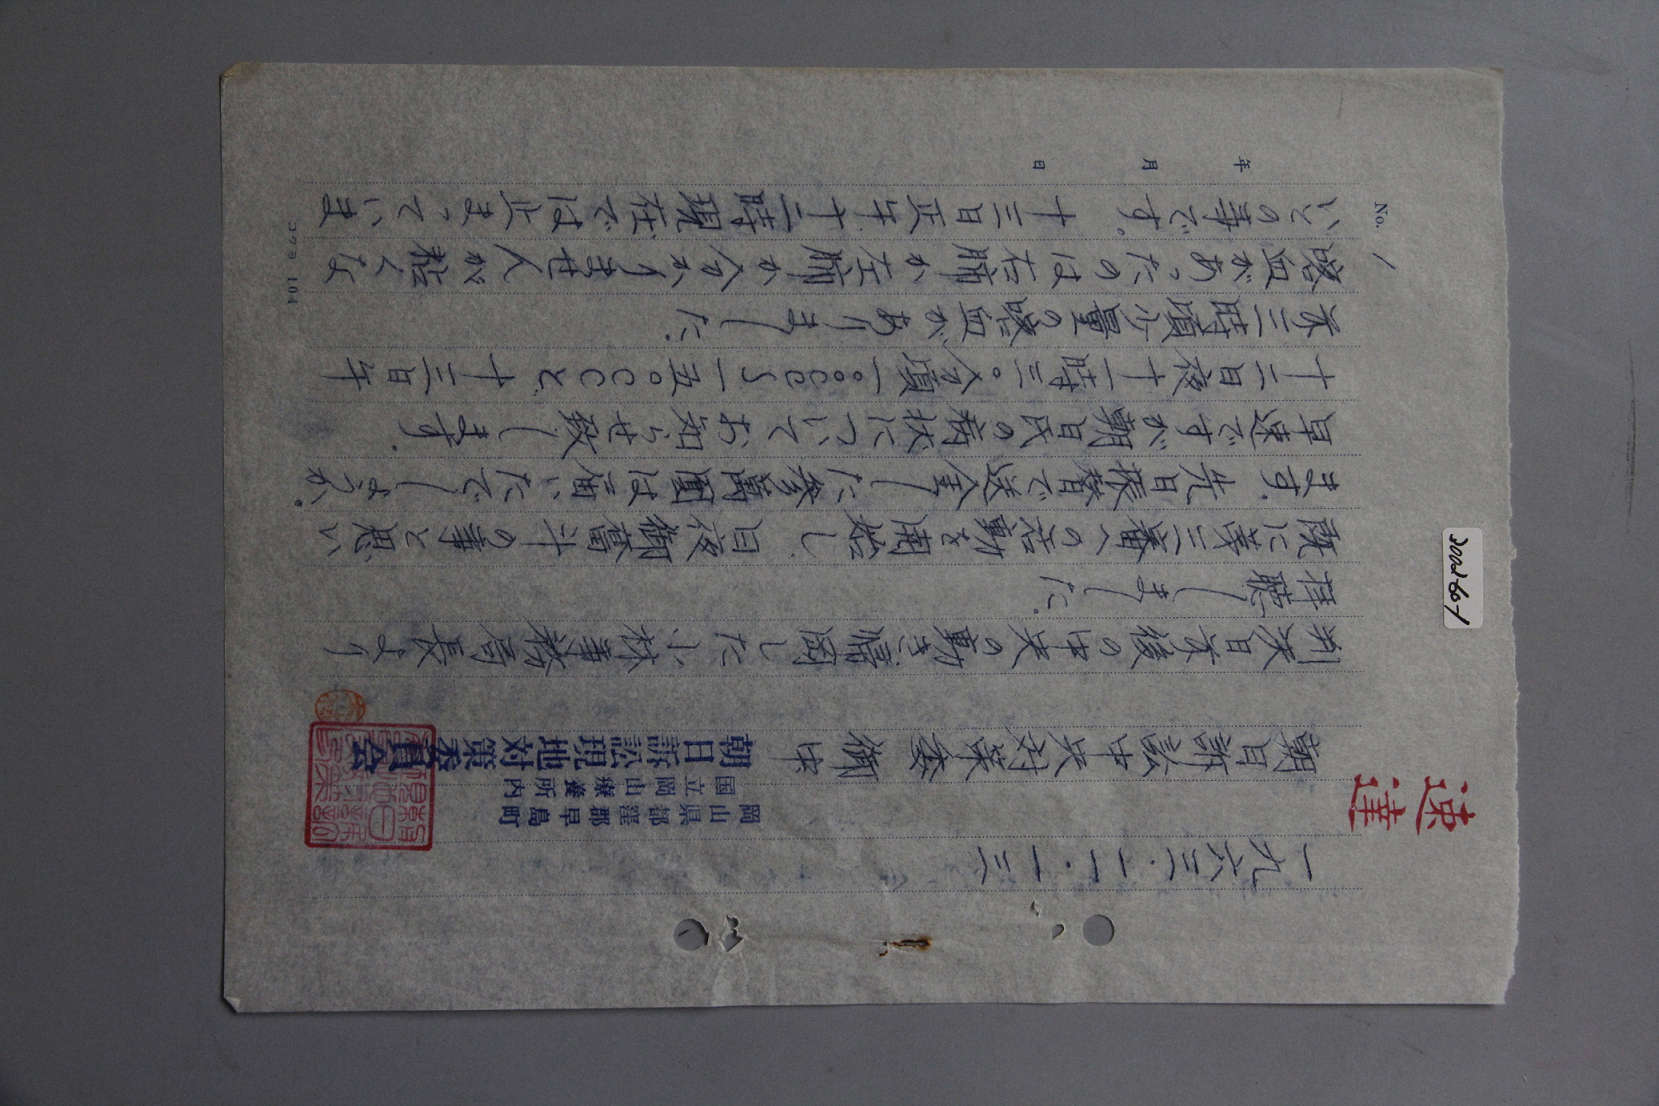 速達
No. 1
年 月 日
一九六三・一一・一三
岡山県都窪郡早島町
国立岡山療養所内
朝日訴訟現地対策委員会
朝日訴訟中央対策委 御中
判決日前後の中央の動き、帰岡した小林事務局長より
拝聴しました。
既に第三審への活動を開始し、日夜御奮斗の事と思い
ます。先日振替で送金した参萬圓は届いたでしょうか。
早速ですが朝日氏の病状についてお知らせ致します。
十二日夜十一時三〇分頃一〇〇CC〜一五〇CCと、十三日午
前三時頃少量の喀血がありました。
喀血があったのは右肺か左肺か分かりませんが粘くな
いとの事です。十三日正午十二時現在では止まっていま
379 104
3002-60-1